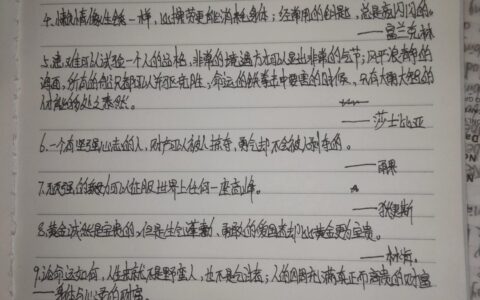 4.懒惰像生锈一样,比操劳更能消耗身体;经常用的钥匙,总是亮闪闪的。
——富兰克林
5.患难可以试验一个人的品格,非常的境遇方才可以显出非常的气节;风平浪静的
海面,所有的船只都可以并驱竞胜;命运的铁拳击中要害的时候,只有大勇大智的
人才能够处之泰然。
——莎士比亚
6.一个有坚强心志的人,财产可以被人掠夺,勇气却不会被人剥夺的。
——雨果
7.顽强的毅力可以征服世界上任何一座高峰。
——狄更斯
8.黄金诚然是宝贵的,但是生气蓬勃、勇敢的爱国者却比黄金更为宝贵。
——林肯
9.论命运如何,人生来就不是野蛮人,也不是乞讨者;人的四周充满真正而高贵的财富
——身体与心灵的财富。